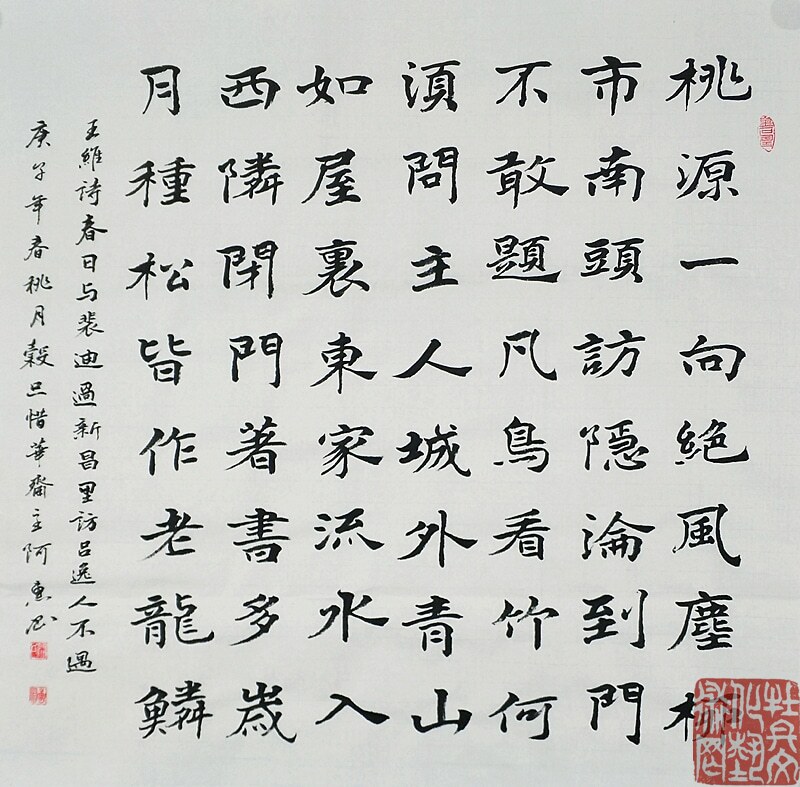 桃源一向絶風塵柳
市南頭訪隱淪到門
不敢題凡鳥看竹何
湏問主人城外青山
如屋裏東家流水入
西隣閉門著書多歲
月種松皆作老龍鱗
王維詩春日与裴迪過新昌里訪呂逸人不遇
庚子年春桃月穀旦惜華齋主阿惠书